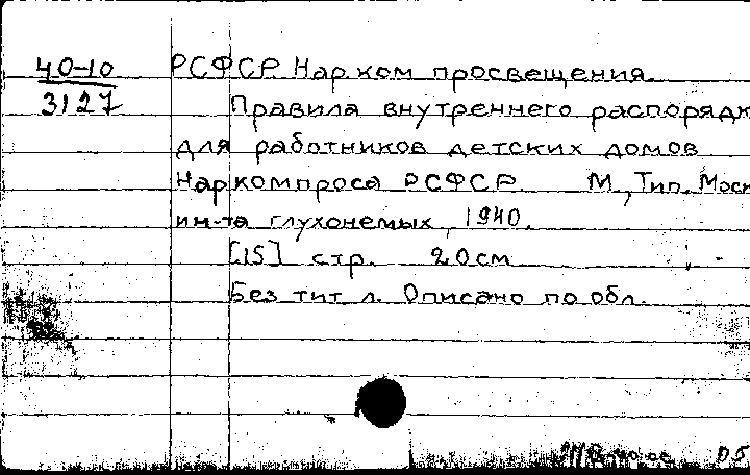 40-10
3127
РСФСР Нарком просвещения.
Правила внутреннего распорядк
для работников детских домов
Наркомпроса РСФСР. М., Тип. Моск
ин-та глухонемых, 1940.
[15] стр. 20 см
Без тит л. Описано по обл.